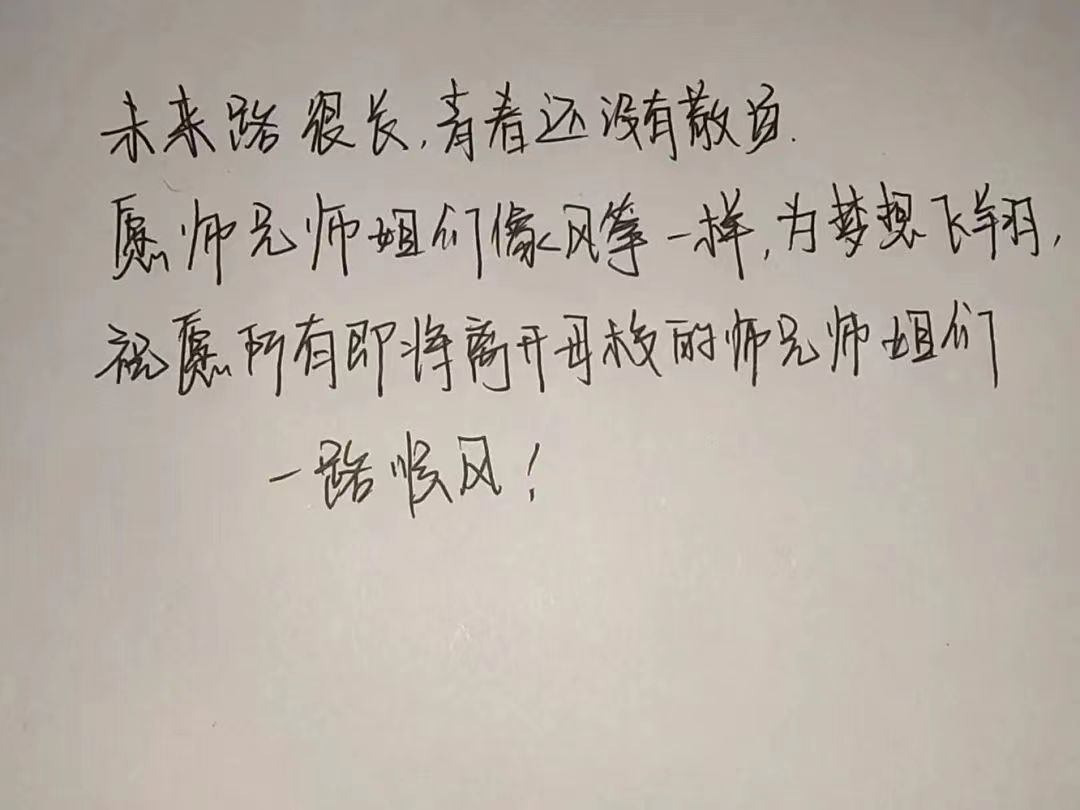 未来路很长,青春还没有散场.
愿师兄师姐们像风筝一样,为梦想飞翔,
祝愿所有即将离开母校的师兄师姐们
一路顺风!